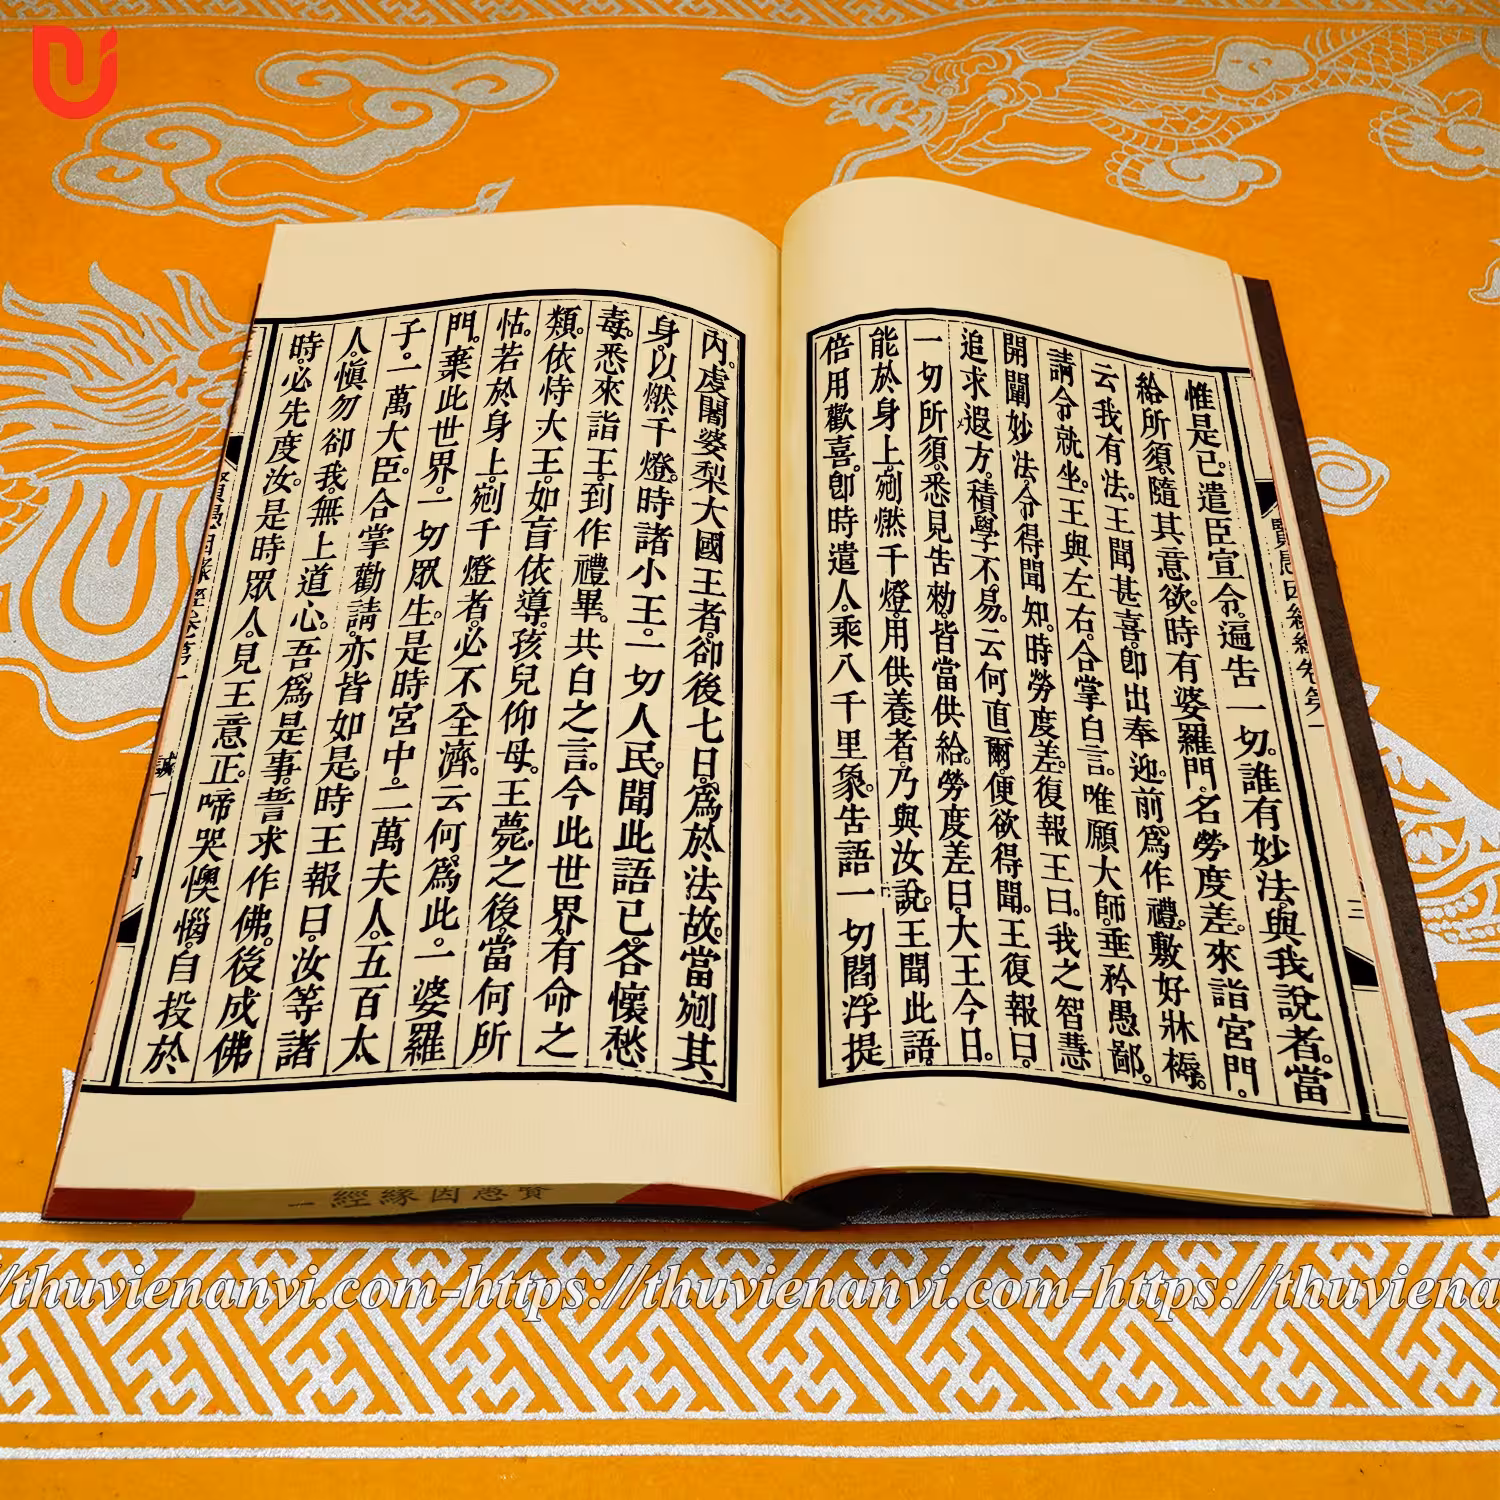 惟是已。遣臣宣令。遍告一切。誰有妙法。與我說者。當
給所須。隨其意欲。時有婆羅門。名勞度差。來詣宮門。
云我有法。王聞甚喜。卽出奉迎。前爲作禮。敷好牀褥。
請令就坐。王與左右。合掌白言。唯願大師。垂矜愚鄙。
開闡妙法。令得聞知。時勞度差。復報王曰。我之智慧
追求遐方。積學不易。云何直爾。便欲得聞。王復報曰。
一切所須。悉見告勅。皆當供給。勞度差曰。大王今日。
能於身上。剜燃千燈。用供養者。乃與汝說。王聞此語。
倍用歡喜。卽時遣人。乘八千里象。告語一切閻浮提
內。虔闍婆梨大國王者。卻後七日。爲於法故。當剜其
身。以燃千燈。時諸小王。一切人民。聞此語已。各懷愁
毒。悉來詣王。到作禮畢。共白之言。今此世界。有命之
類。依恃大王。如盲依導。孩兒仰母。王薨之後。當何所
怙。若於身上。剜千燈者。必不全濟。云何爲此。一婆羅
門。棄此世界。一切眾生。是時宮中。二萬夫人。五百太
子。一萬大臣。合掌勸請。亦皆如是。時王報曰。汝等諸
人。愼勿卻我。無上道心。吾爲是事。誓求作佛。後成佛
時。必先度汝。是時眾人。見王意正。啼哭懊惱。自投於
三
誠一
賢愚因緣經一
//thuvienanvi.com-https://thuvienanvi.com-https://thuviena